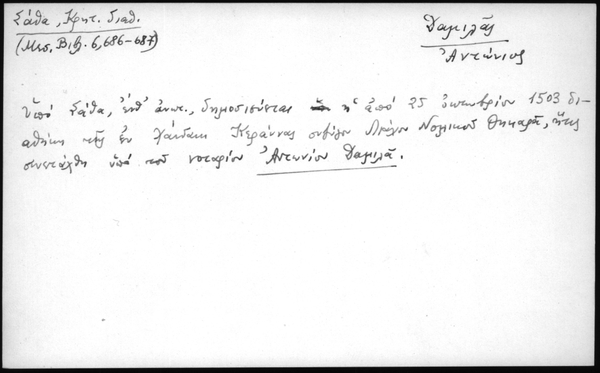 Σάθα, Κρητ. διαθ.
(Μεσ. Βιβ. 6, 686-687)
Δαμιλᾶς
Ἀντώνιος
Ὑπὸ Σάθα, ἐνθ' ἀνωτ., δημοσιεύεται ἡ ἀπὸ 25 ὀκτωβρίου 1503 δι-
αθήκη τῆς ἐν Χάνδακι Κεράννας συζύγου Μάρκου Νομικοῦ Θηκαρᾶ, ἥτις
συνετάχθη ὑπὸ τοῦ νοταρίου Ἀντωνίου Δαμιλᾶ.